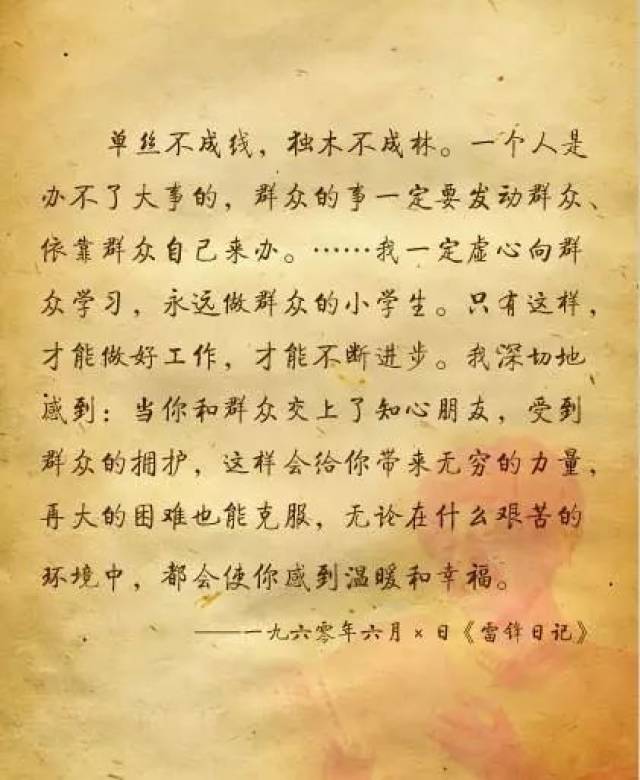 单丝不成线，独木不成林。一个人是
办不了大事的，群众的事一定要发动群众、
依靠群众自己来办。……我一定虚心向群
众学习，永远做群众的小学生。只有这样，
才能做好工作，才能不断进步。我深切地
感到：当你和群众交上了知心朋友，受到
群众的拥护，这样会给你带来无穷的力量，
再大的困难也能克服，无论在什么艰苦的
环境中，都会使你感到温暖和幸福。
——一九六零年六月×日《雷锋日记》